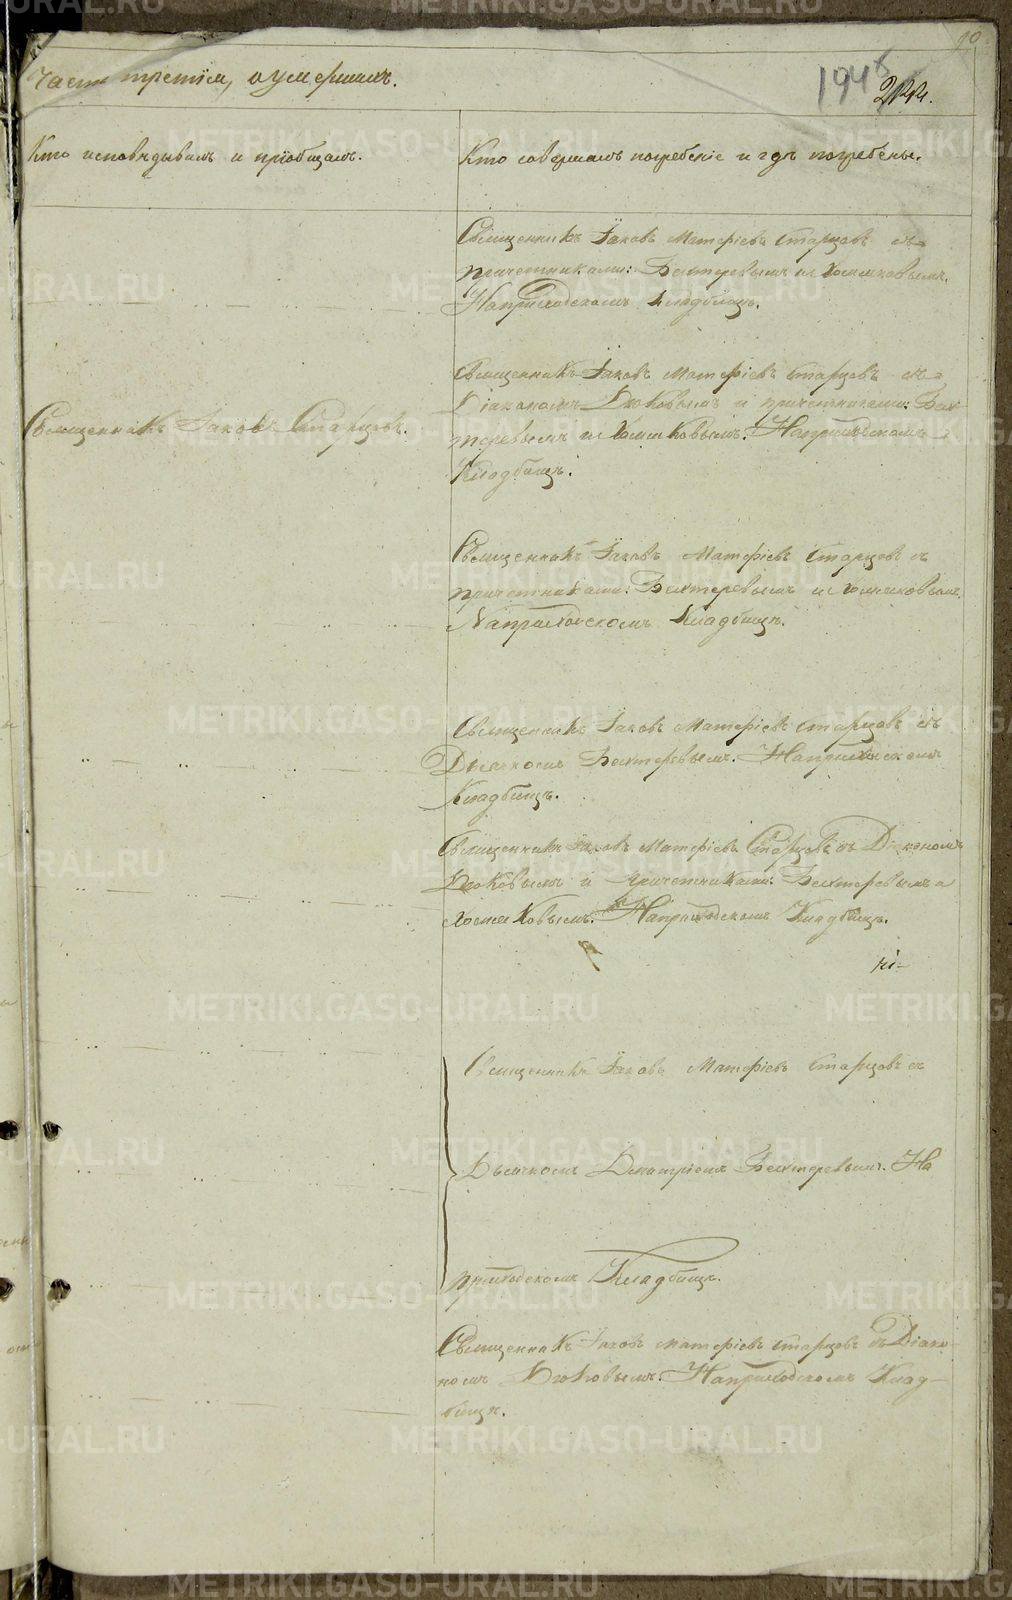 Часть третія, о умершихъ.
194
Кто исповѣдывалъ и пріобщалъ.
Кто совершалъ погребеніе и гдѣ погребены.
Священникъ Іаковъ Матѳіевъ Старцовъ съ
причетниками: Бехтеревымъ и Хомяковымъ.
На приходскомъ Кладбищѣ.
Священникъ Іаковъ Матѳіевъ Старцовъ съ
Діакономъ Дюковымъ и причетниками: Бех-
теревымъ и Хомяковымъ. На приходскомъ
Кладбищѣ.
Священникъ Іаковъ Старцовъ.
Священникъ Іаковъ Матѳіевъ Старцовъ съ
причетниками: Бехтеревымъ и Хомяковымъ.
На приходскомъ Кладбищѣ.
Священникъ Іаковъ Матѳіевъ Старцовъ съ
Дьячкомъ Бехтеревымъ. На приходскомъ
Кладбищѣ.
Священникъ Іаковъ Матѳіевъ Старцовъ съ Діакономъ
Дюковымъ и Причетниками: Бехтеревымъ и
Хомяковымъ. На приходскомъ Кладбищѣ.
Священникъ Іаковъ Матѳіевъ Старцовъ съ
Дьячкомъ Димитріемъ Бехтеревымъ. На
приходскомъ Кладбищѣ.
Священникъ Іаковъ Матѳіевъ Старцовъ съ Діако-
номъ Дюковымъ. На приходскомъ Клад-
бищѣ.
METRIKI.GASO-URAL.RU